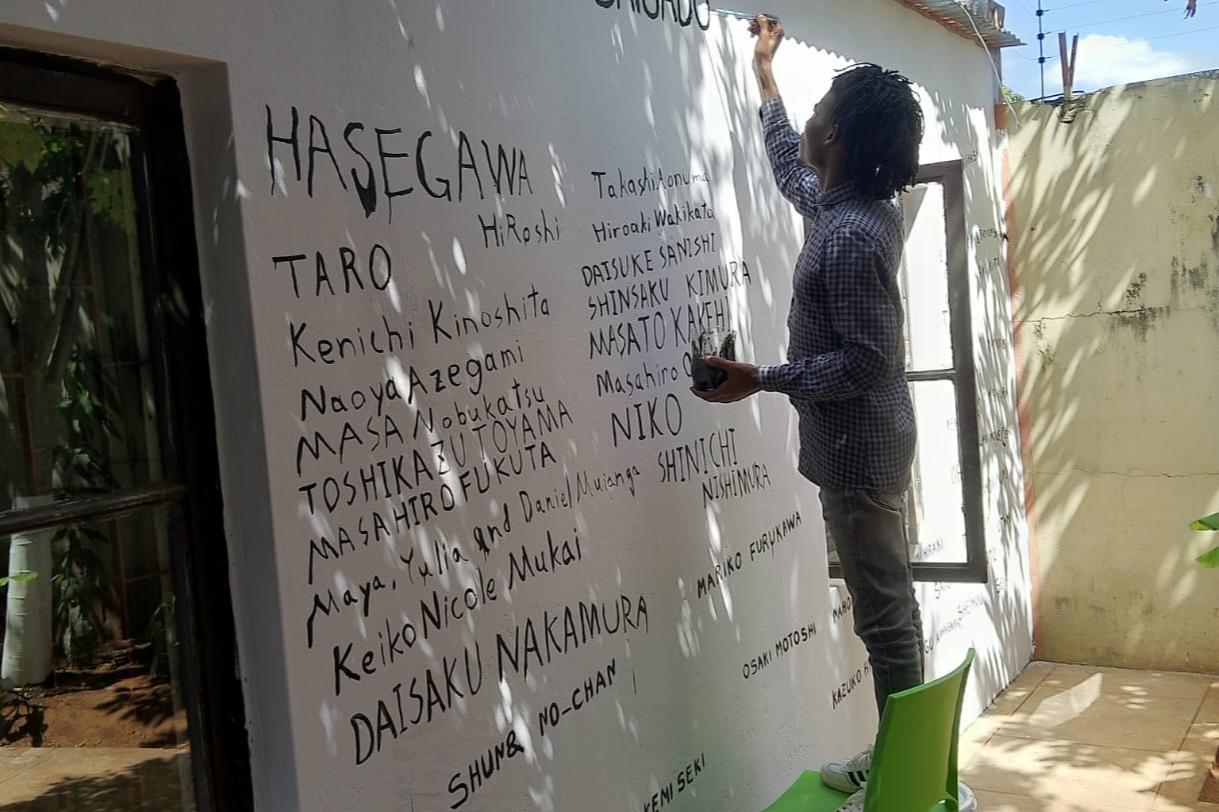 HASEGAWA
HiRoshi
TARO
Kenichi Kinoshita
Naoya Azegami
MASA Nobukatsu
TOSHIKAZU TOYAMA
MASAHIRO FUKUTA
Maya, Yulia and Daniel Muianga
Keiko Nicole Mukai
DAISAKU NAKAMURA
SHUN& NO-CHAN
Takashi Aonuma
Hiroaki Wakikata
DAISUKE SANISHI
SHINSAKU KIMURA
MASATO KAKEHI
Masahiro
NIKO
SHINICHI
NISHIMURA
MARIKO FURUKAWA
OSAKI MOTOSHI
KAZUKO
KEMI SEKI